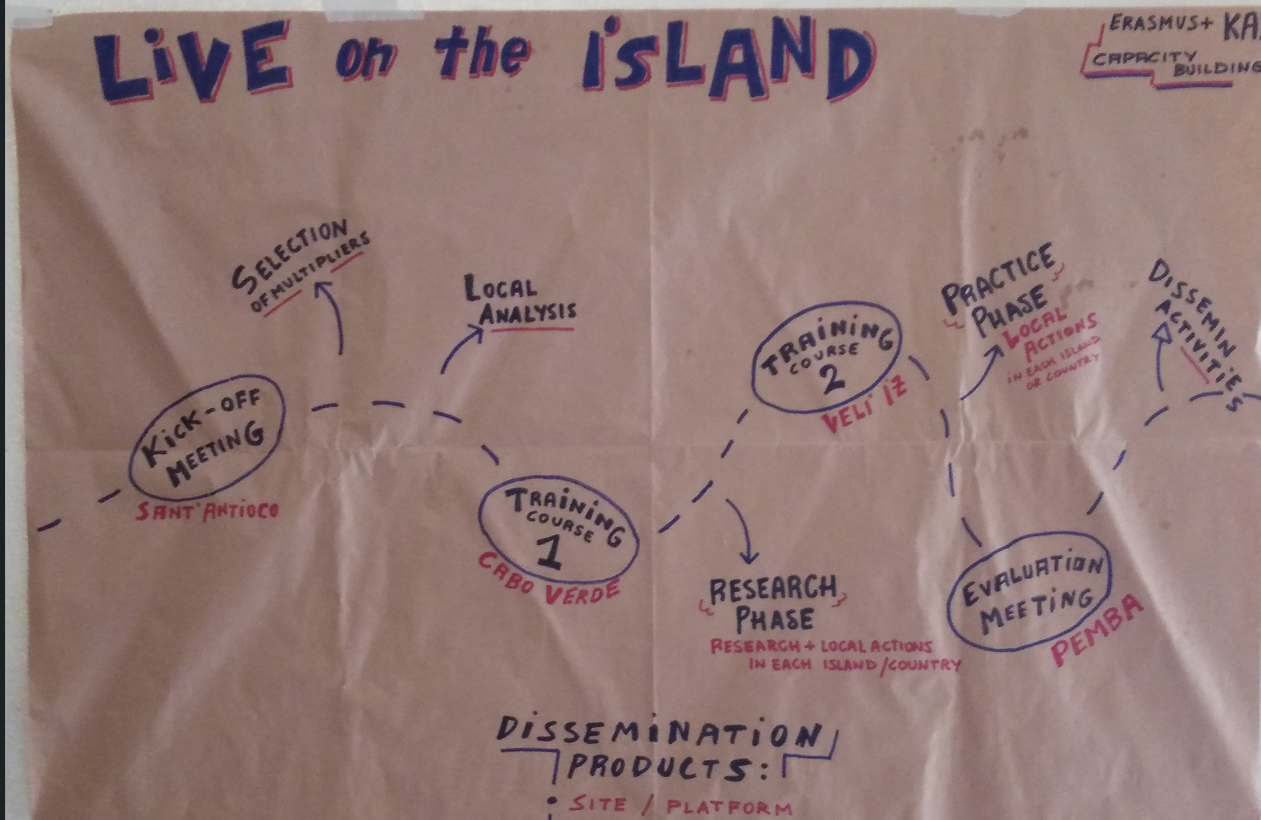 LiVE on the iSLAND
ERASMUS+ KA
CAPACITY
BUILDING
SELECTION
OF MULTIPLIERS
LOCAL
ANALYSIS
KiCK-OFF
MEETING
SANT'ANTIOCO
TRAINING
COURSE
1
CABO VERDE
RESEARCH
PHASE
RESEARCH + LOCAL ACTIONS
IN EACH ISLAND/COUNTRY
TRAiNiNG
COURSE
2
VELI IŽ
PRACTICE
PHASE
LOCAL
ACTIONS
IN EACH ISLAND
OR COUNTRY
EVALUATiON
MEETiNG
PEMBA
DISSEMIN
ACTIVITIES
DiSSEMiNATiON
PRODUCTS:
• SITE / PLATFORM